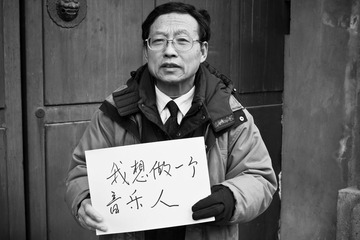 我想做一个
音乐人